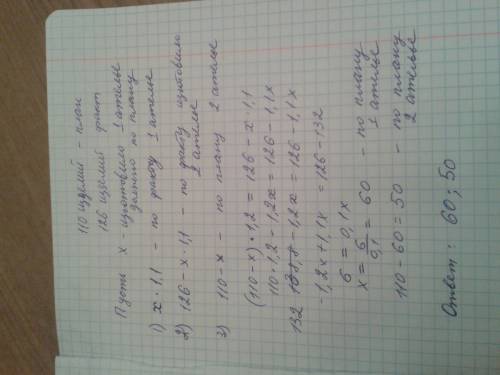 110 изделий - план
126 изделий факт
Пусть х - изготовило 1 ателье
должно по плану
1) х · 1,1 - по факту 1 ателье
2) 126 - х · 1,1 - по факту изготовило
2 ателье
3) 110 - х - по плану 2 ателье
(110 - х) · 1,2 = 126 - х · 1,1
110 · 1,2 - 1,2х = 126 - 1,1х
132 - 1,2х = 126 - 1,1х
-1,2х + 1,1х = 126 - 132
6 = 0,1х
х = 6/0,1 = 60 - по плану
1 ателье
110 - 60 = 50 - по плану
2 ателье
Ответ: 60; 50